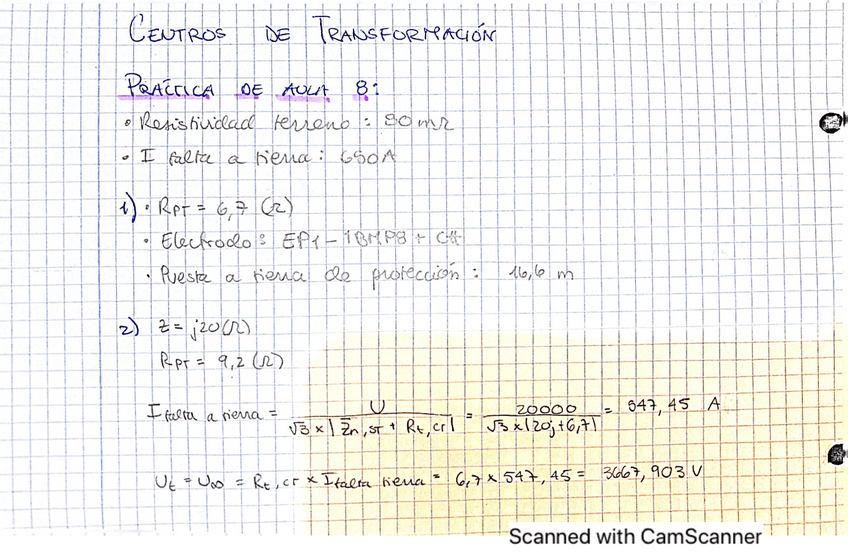 CENTROS DE TRANSFORMACIÓN
PRÁCTICA DE AULA 8:
• Resistividad terreno : 80 mΩ
• I falta a tierra : 650A
1) • RPT = 6,7 (Ω)
• Electrodo : EP1 - 1BMP8 + C#
• Puesta a tierra de protección : 16,6 m
2) Z = j20 (Ω)
RPT = 9,2 (Ω)
I falta a tierra = U / √3 x | Z̄n,ST + Rt,cr | = 20000 / √3 x |20j+6,7| = 547,45 A
Ut = U∞ = Rt,cr x Ifalta tierra = 6,7 x 547,45 = 3667,903 V
Scanned with CamScanner